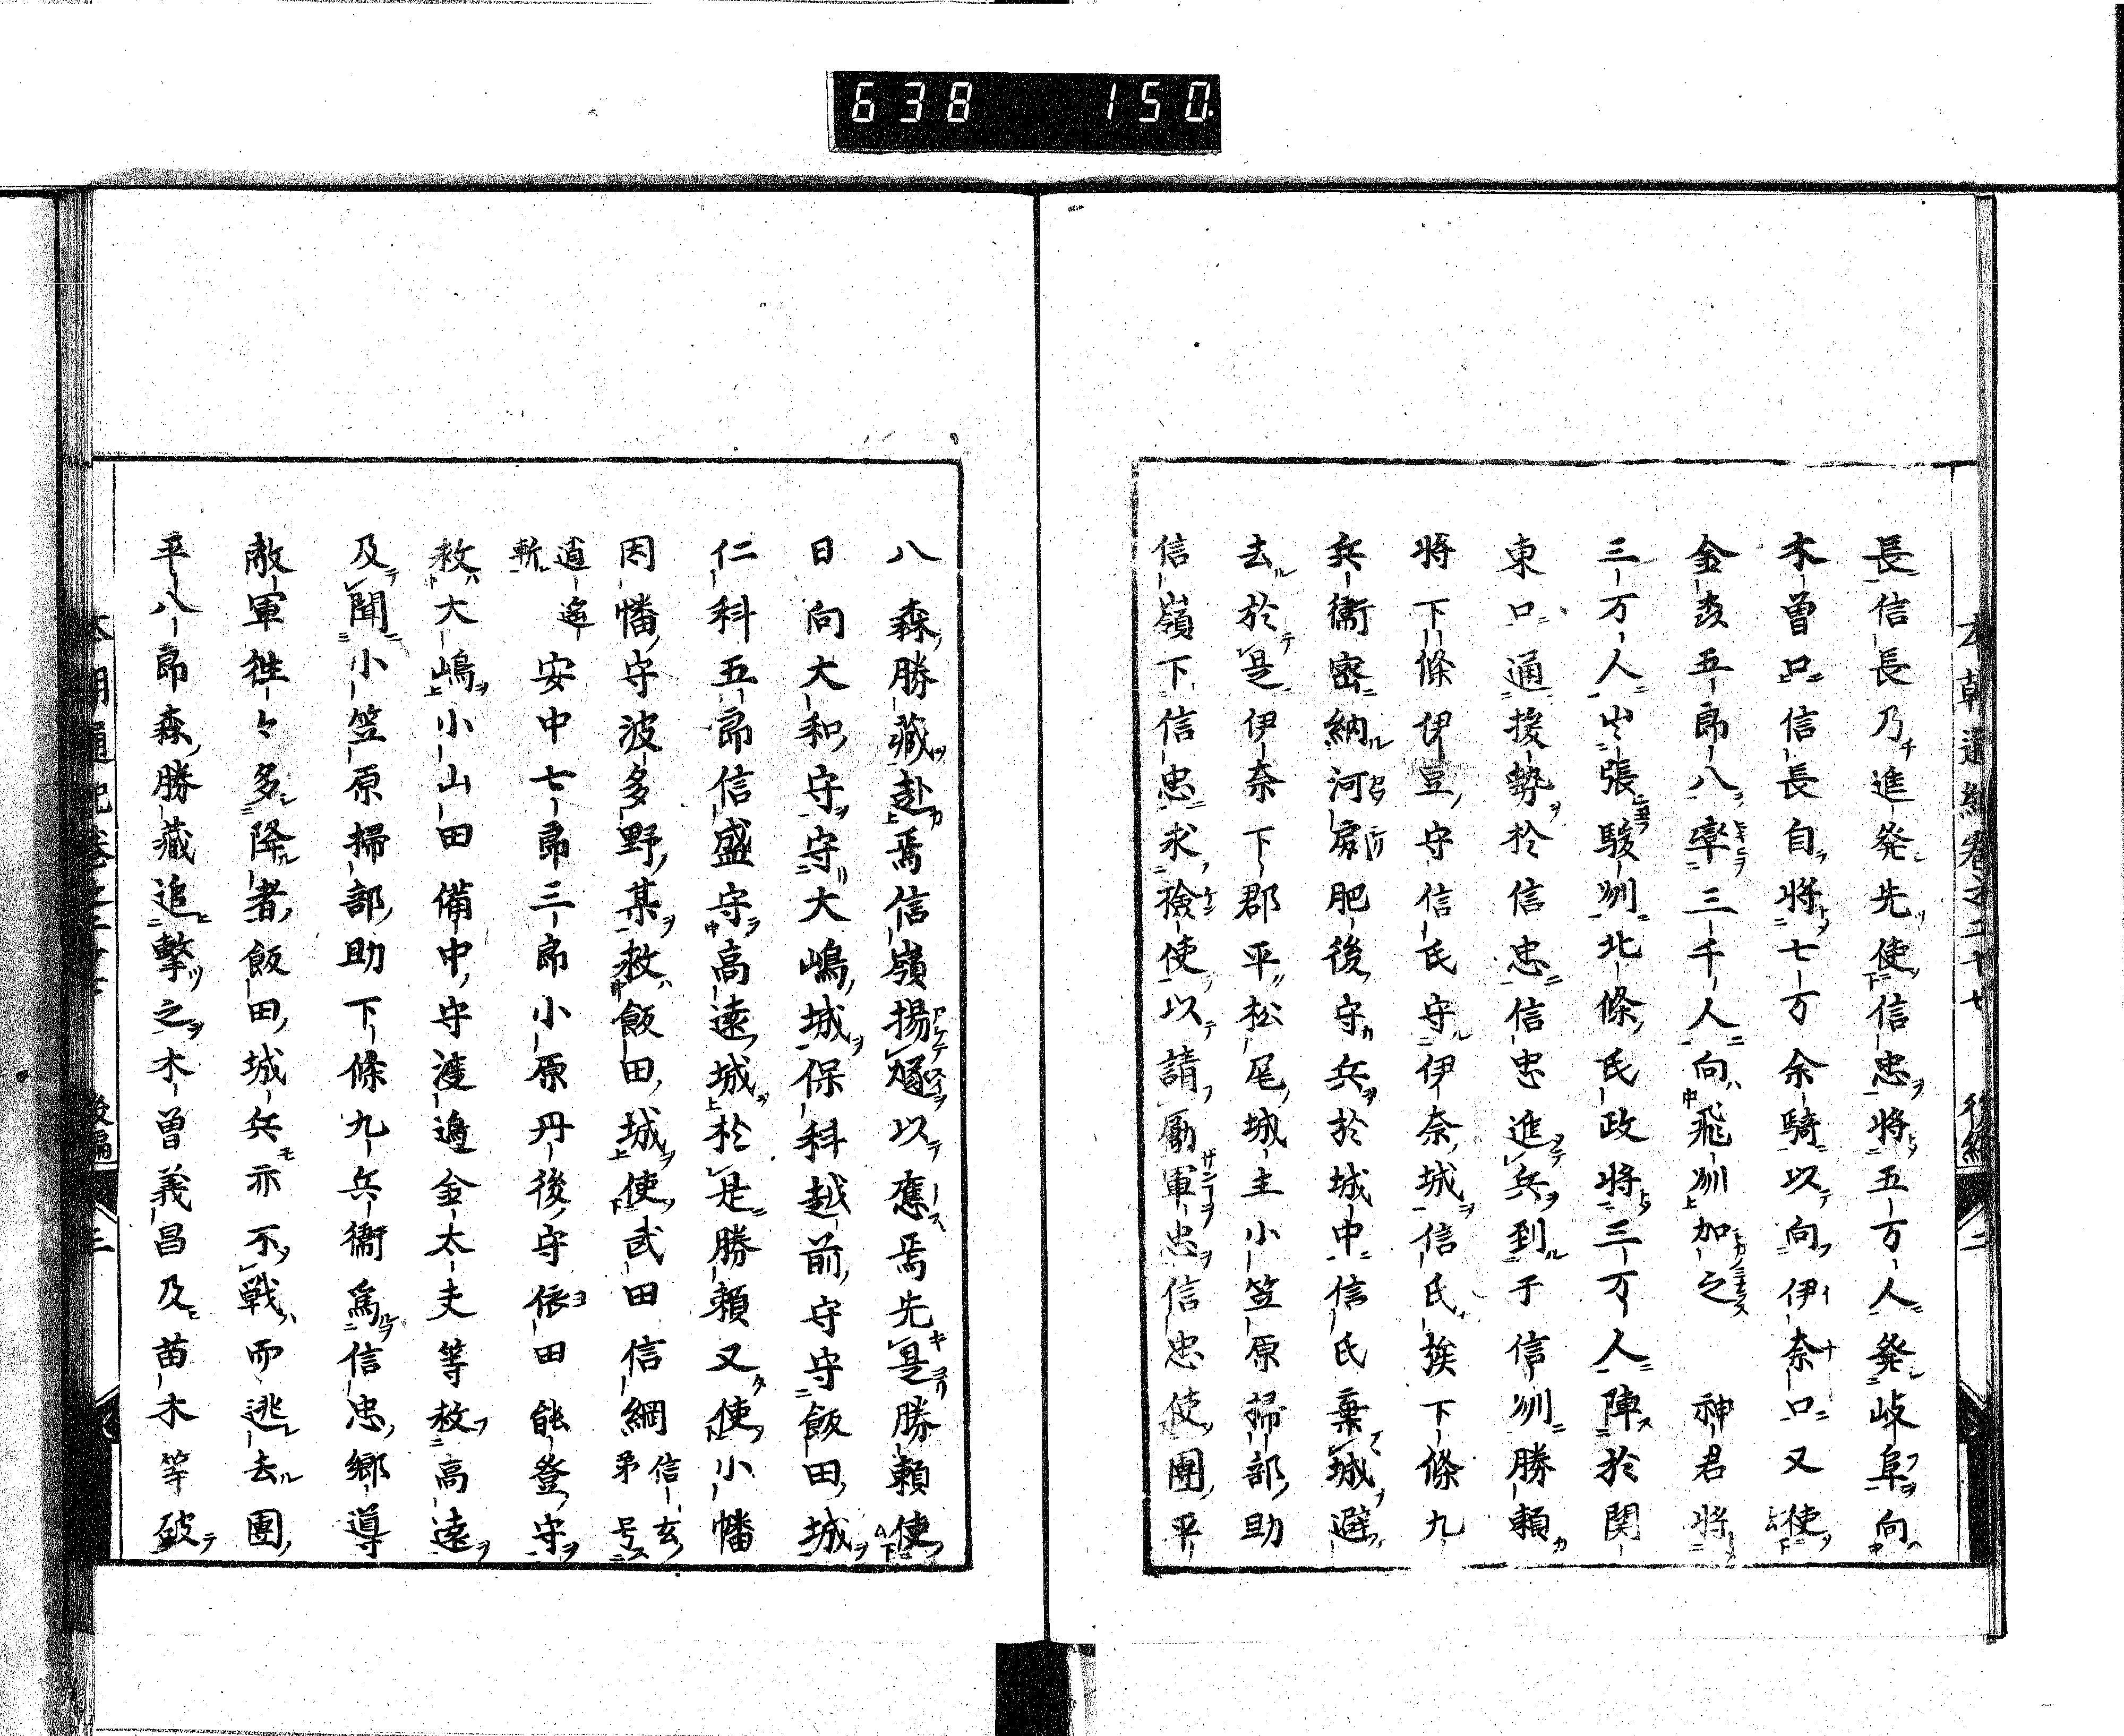 638 150
長信長乃進発先使信忠将五万人発岐阜向
木曽口信長自将七万余騎以向伊奈口又使
金森五郎八率三千人向飛州加之 神君将
三万人出張駿州北條氏政将三万人陣於関
東口通援勢於信忠信忠進兵到于信州勝頼
将下條伊豆守信氏守伊奈城信氏族下條九
兵衛密納河尻肥後守兵於城中信氏棄城避
去於是伊奈下郡平松尾城主小笠原掃部助
信嶺下信忠求検使以請励軍忠信忠使團平
八森勝藏赴焉信嶺揚燧以應焉先是勝頼使
日向大和守守大嶋城保科越前守守飯田城
仁科五郎信盛守高遠城於是勝頼又使小幡
因幡守波多野某救飯田城使武田信綱信玄弟号
逍遙軒安中七郎三郎小原丹後守依田能登守
救大嶋小山田備中守渡邉金太夫等救高遠
及聞小笠原掃部助下條九兵衛為信忠郷導
敵軍徃々多降者飯田城兵亦不戦而逃去團
平八郎森勝藏追撃之木曽義昌及苗木等破